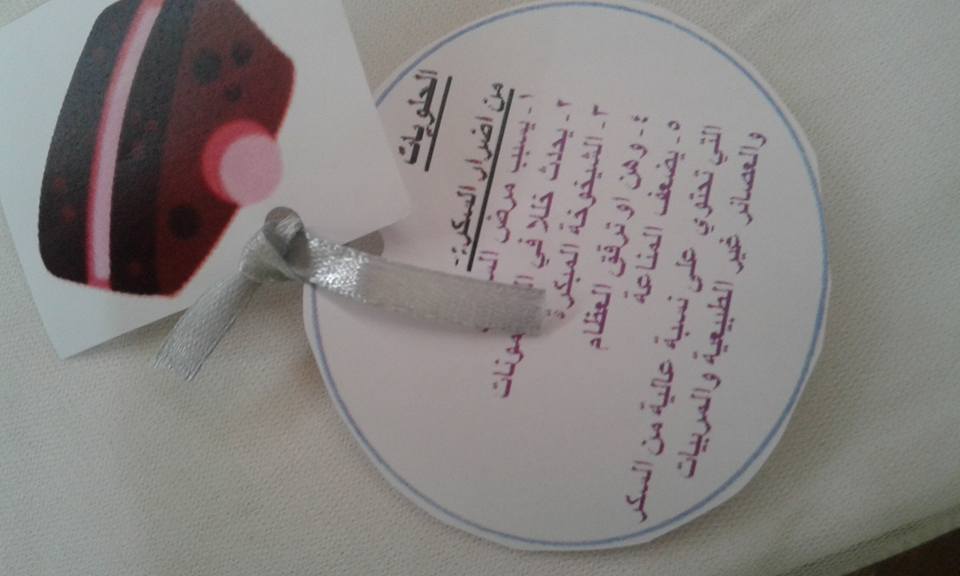 الحلويات
من اضرار السكر:-
١- يسبب مرض
٢- يحدث خللا في
٣- الشيخوخة المبكرة
٤- وهن او ترقق العظام
٥- يضعف المناعة
التي تحتوي على نسبة عالية من السكر
والعصائر غير الطبيعية والمربيات